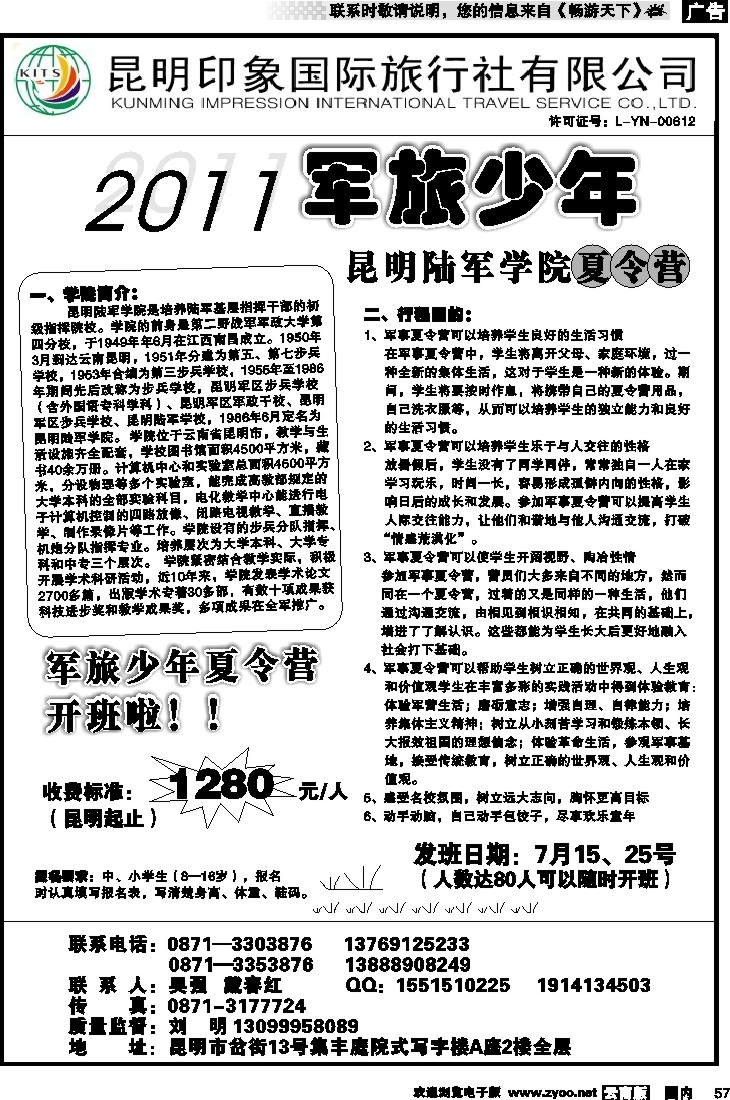 联系时敬请说明，您的信息来自《畅游天下》
广告
KITS
昆明印象国际旅行社有限公司
KUNMING IMPRESSION INTERNATIONAL TRAVEL SERVICE CO.,LTD.
许可证号：L-YN-00612
2011 军旅少年
昆明陆军学院夏令营
一、学院简介：
昆明陆军学院是培养陆军基层指挥干部的初
级指挥院校。学院的前身是第二野战军军政大学第
四分校，于1949年年6月在江西南昌成立。1950年
3月到达云南昆明，1951年分建为第五、第七步兵
学校，1953年合编为第三步兵学校，1955年至1986
年期间先后改称为步兵学校，昆明军区步兵学校
（含外国语专科学科）、昆明军区军政干校、昆明
军区步兵学校、昆明陆军学校，1986年6月定名为
昆明陆军学院。 学院位于云南省昆明市，教学与生
活设施齐全配套，学校图书馆面积4500平方米，藏
书40余万册。计算机中心和实验室总面积4600平方
米，分设物理等多个实验室，能完成高教部规定的
大学本科的全部实验科目，电化教学中心能进行电
子计算机控制的四路放像、闭路电视教学、直播教
学、制作录像片等工作。学院设有的步兵分队指挥、
机炮分队指挥专业。培养层次为大学本科、大学专
科和中专三个层次。 学院紧密结合教学实际，积极
开展学术科研活动，近10年来，学院发表学术论文
2700多篇，出版学术专著30多部，有数十项成果获
科技进步奖和教学成果奖，多项成果在全军推广。
军旅少年夏令营
开班啦！！
收费标准： 1280 元/人
（昆明起止）
中、小学生（8—16岁），报名
时认真填写报名表，写清楚身高、体重、鞋码。
二、行程目的：
1、军事夏令营可以培养学生良好的生活习惯
在军事夏令营中，学生将离开父母、家庭环境，过一
种全新的集体生活，这对于学生是一种新的体验。期
间，学生将要按时作息，将携带自己的夏令营用品，
自己洗衣服等，从而可以培养学生的独立能力和良好
的生活习惯。
2、军事夏令营可以培养学生乐于与人交往的性格
放暑假后，学生没有了同学同伴，常常独自一人在家
学习玩乐，时间一长，容易形成孤僻内向的性格，影
响日后的成长和发展。参加军事夏令营可以提高学生
人际交往能力，让他们和谐地与他人沟通交流，打破
“情感荒漠化”。
3、军事夏令营可以使学生开阔视野、陶冶性情
参加军事夏令营，营员们大多来自不同的地方，然而
同在一个夏令营，过着的又是同样的一种生活，他们
通过沟通交流，由相见到相识相知，在共同的基础上，
增进了了解认识。这些都能为学生长大后更好地融入
社会打下基础。
4、军事夏令营可以帮助学生树立正确的世界观、人生观
和价值观学生在丰富多彩的实践活动中得到体验教育：
体验军营生活；磨砺意志；增强自理、自律能力；培
养集体主义精神；树立从小刻苦学习和锻炼本领、长
大报效祖国的理想信念；体验革命生活，参观军事基
地，接受传统教育，树立正确的世界观、人生观和价
值观。
5、感受名校氛围，树立远大志向，胸怀更高目标
6、动手动脑，自己动手包饺子，尽享欢乐童年
发班日期：7月15、25号
（人数达80人可以随时开班）
联系电话：0871—3303876 13769125233
0871—3353876 13888908249
联 系 人：吴强 戴春红 QQ：1551510225 1914134503
传 真：0871-3177724
质量监督：刘 明 13099958089
地 址：昆明市岔街13号集丰庭院式写字楼A座2楼全层
欢迎浏览电子版 www.zyoo.net 云南版 国内 57